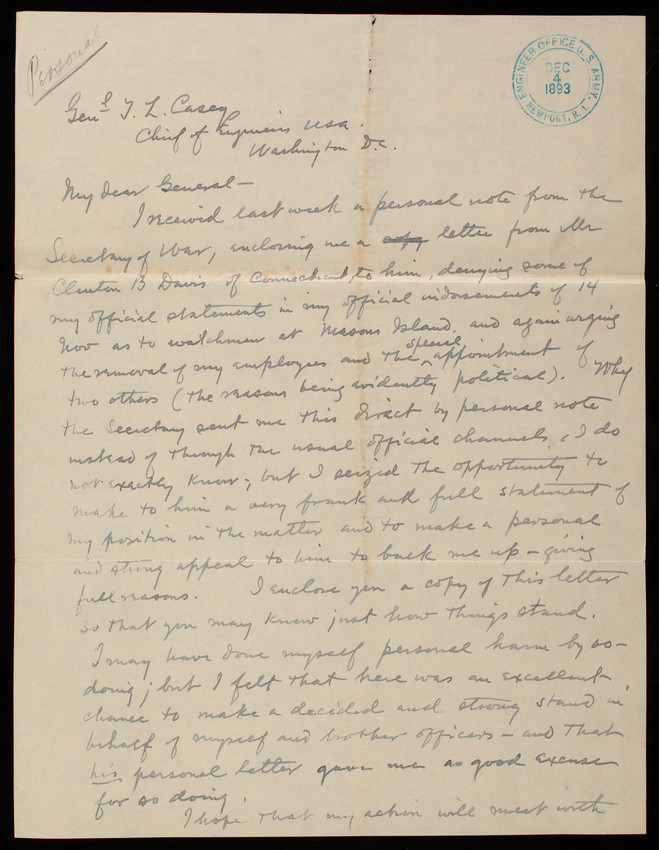 Personal
ENGINEER OFFICE U.S. ARMY.
DEC
4
1893
NEWPORT, R.I.
Genl T. L. Casey
Chief of Engineers USA.
Washington D.C.
My dear General—
I received last week a personal note from the
Secretary of War, enclosing me a copy letter from Mr
Clinton B Davis of Connecticut, to him, denying some of
my official statements in my official indorsements of 14
Nov as to watchmen at Masons Island, and again urging
the removal of my employees and the special appointment of
two others (the reasons being evidently political). Why
the Secretary sent me this direct by personal note
instead of through the usual official channels, I do
not exactly know; but I seized the opportunity to
make to him a very frank and full statement of
my position in the matter and to make a personal
and strong appeal to him to back me up – giving
full reasons. I enclose you a copy of this letter
so that you may know just how things stand.
I may have done myself personal harm by so-
doing; but I felt that here was an excellent
chance to make a decided and strong stand in
behalf of myself and brother officers – and that
his personal letter gave me as good excuse
for so doing.
I hope that my action will meet with